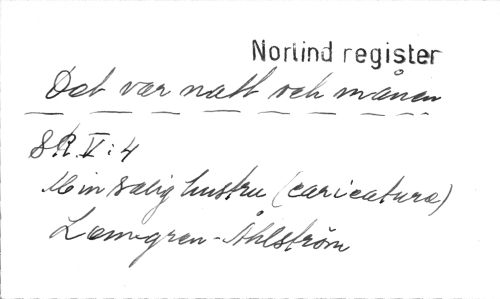 Norlind register
Det var natt och månen
S.R. V:4
Min salig hustru (caricatura)
Lenngren-Åhlström